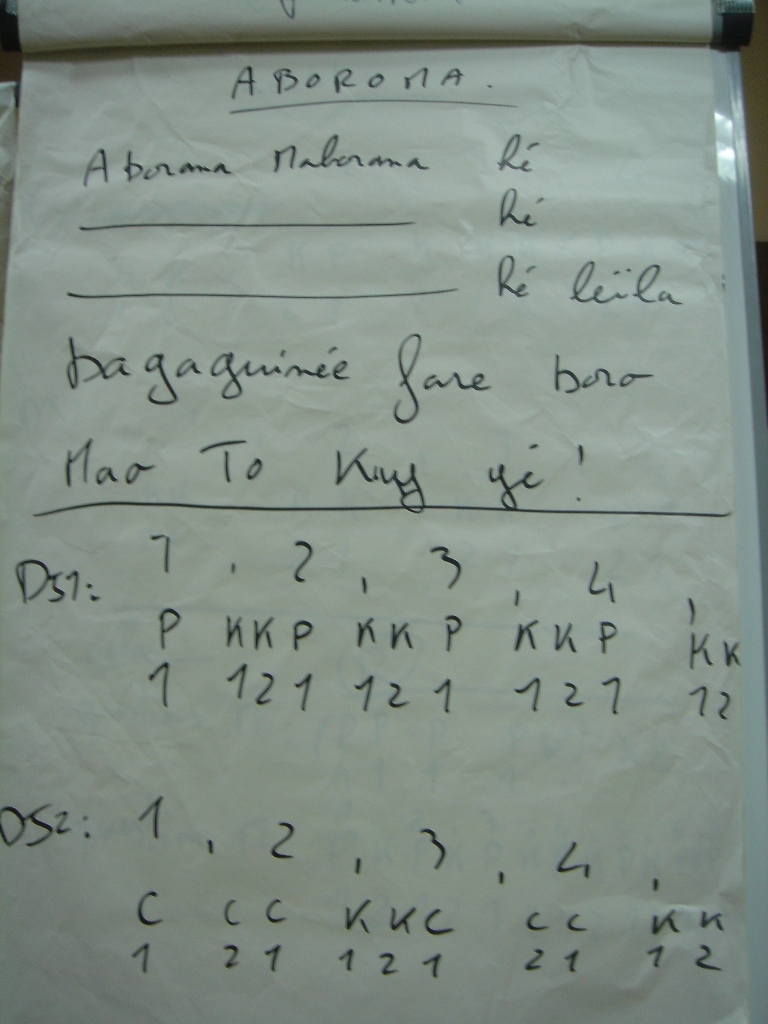 ABOROMA.
Aboroma Maboroma hé
hé
hé leïla
bagaguinée fare boro
Mao To Kuy yé !
DS1: 1 , 2 , 3 , 4 ,
P KKP KKP KKP KK
1 121 121 121 12
DS2: 1 , 2 , 3 , 4 ,
C CC KKC CC KK
1 21 121 21 12